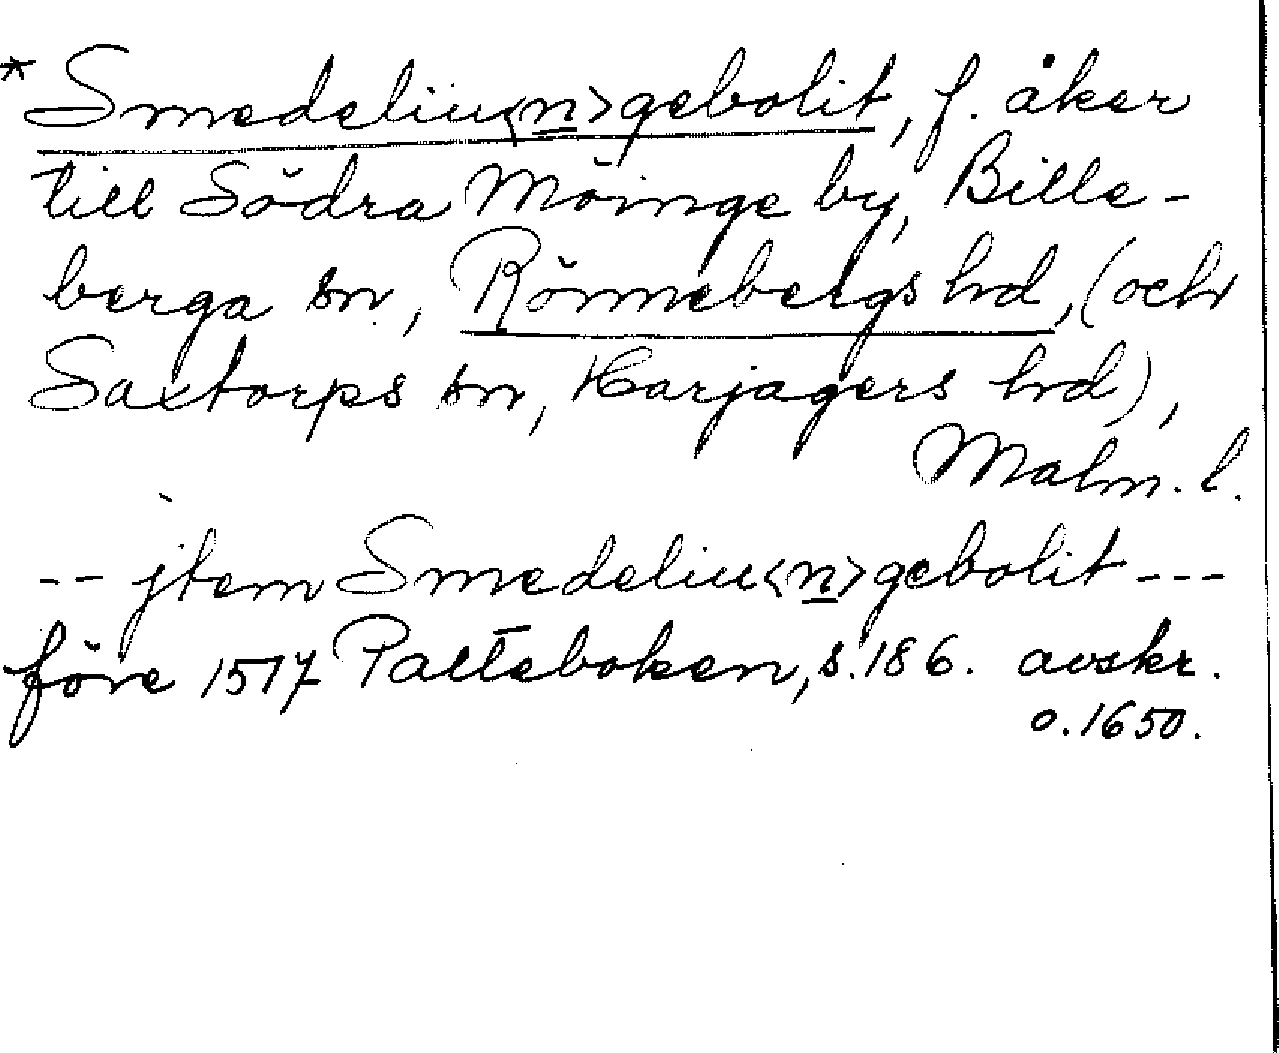 * Smedeliu<n>gebolit, f. åker
till Södra Möinge by, Bille-
berga sn., Rönnebergs hd, (och
Saxtorps sn, Harjagers hd),
Malm. l.
-- jtem Smedeliu<n>gebolit ---
före 1517 Palteboken, s. 186. avskr.
o. 1650.